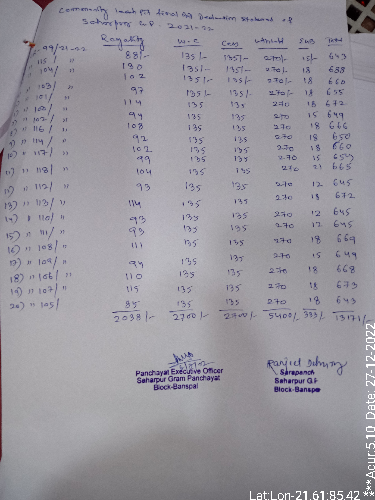 Community Leach Pit final Bill Deduction Statement of
Saharpur G.P. 2021-22
Royality W.C Cess Withheld SUB Total
99/21-22 88/- 135/- 135/- 270/- 15/- 643
115/ " 130 135/- 135/- 270/- 18 688
104/ " 102 135/- 135/- 270/- 18 660
103/ " 97 135/- 135/- 270/- 18 655
101/ " 114 135 135 270 18 672
102/ " 94 135 135 270 15 649
116/ " 108 135 135 270 18 666
114/ " 92 135 135 270 18 650
10) " 117/ " 102 135 135 270 18 660
99 135 135 270 15 654
11) " 118/ " 104 135 135 270 21 665
12) " 112/ " 93 135 135 270 12 645
13) " 113/ " 114 135 135 270 18 672
14) " 110/ " 93 135 135 270 12 645
15) " 111/ " 93 135 135 270 12 645
16) " 108/ " 111 135 135 270 18 669
17) " 109/ " 94 135 135 270 15 649
18) " 106/ " 110 135 135 270 18 668
19) " 107/ " 115 135 135 270 18 673
20) " 105/ 85 135 135 270 18 643
2038/- 2700/- 2700/- 5400/- 333/- 13171/-
Panchayat Executive Officer
Saharpur Gram Panchayat
Block-Banspal
Ranjeet
Sarapanch
Saharpur G.P
Block-Banspal
Lat:Lon-21.61:85.42
***Acur:5.10 Date: 27-12-2022